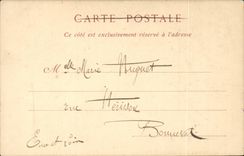 CARTE POSTALE
Ce côté est exclusivement réservé à l'adresse
Mlle Marie Huguet
rue
Bonneval